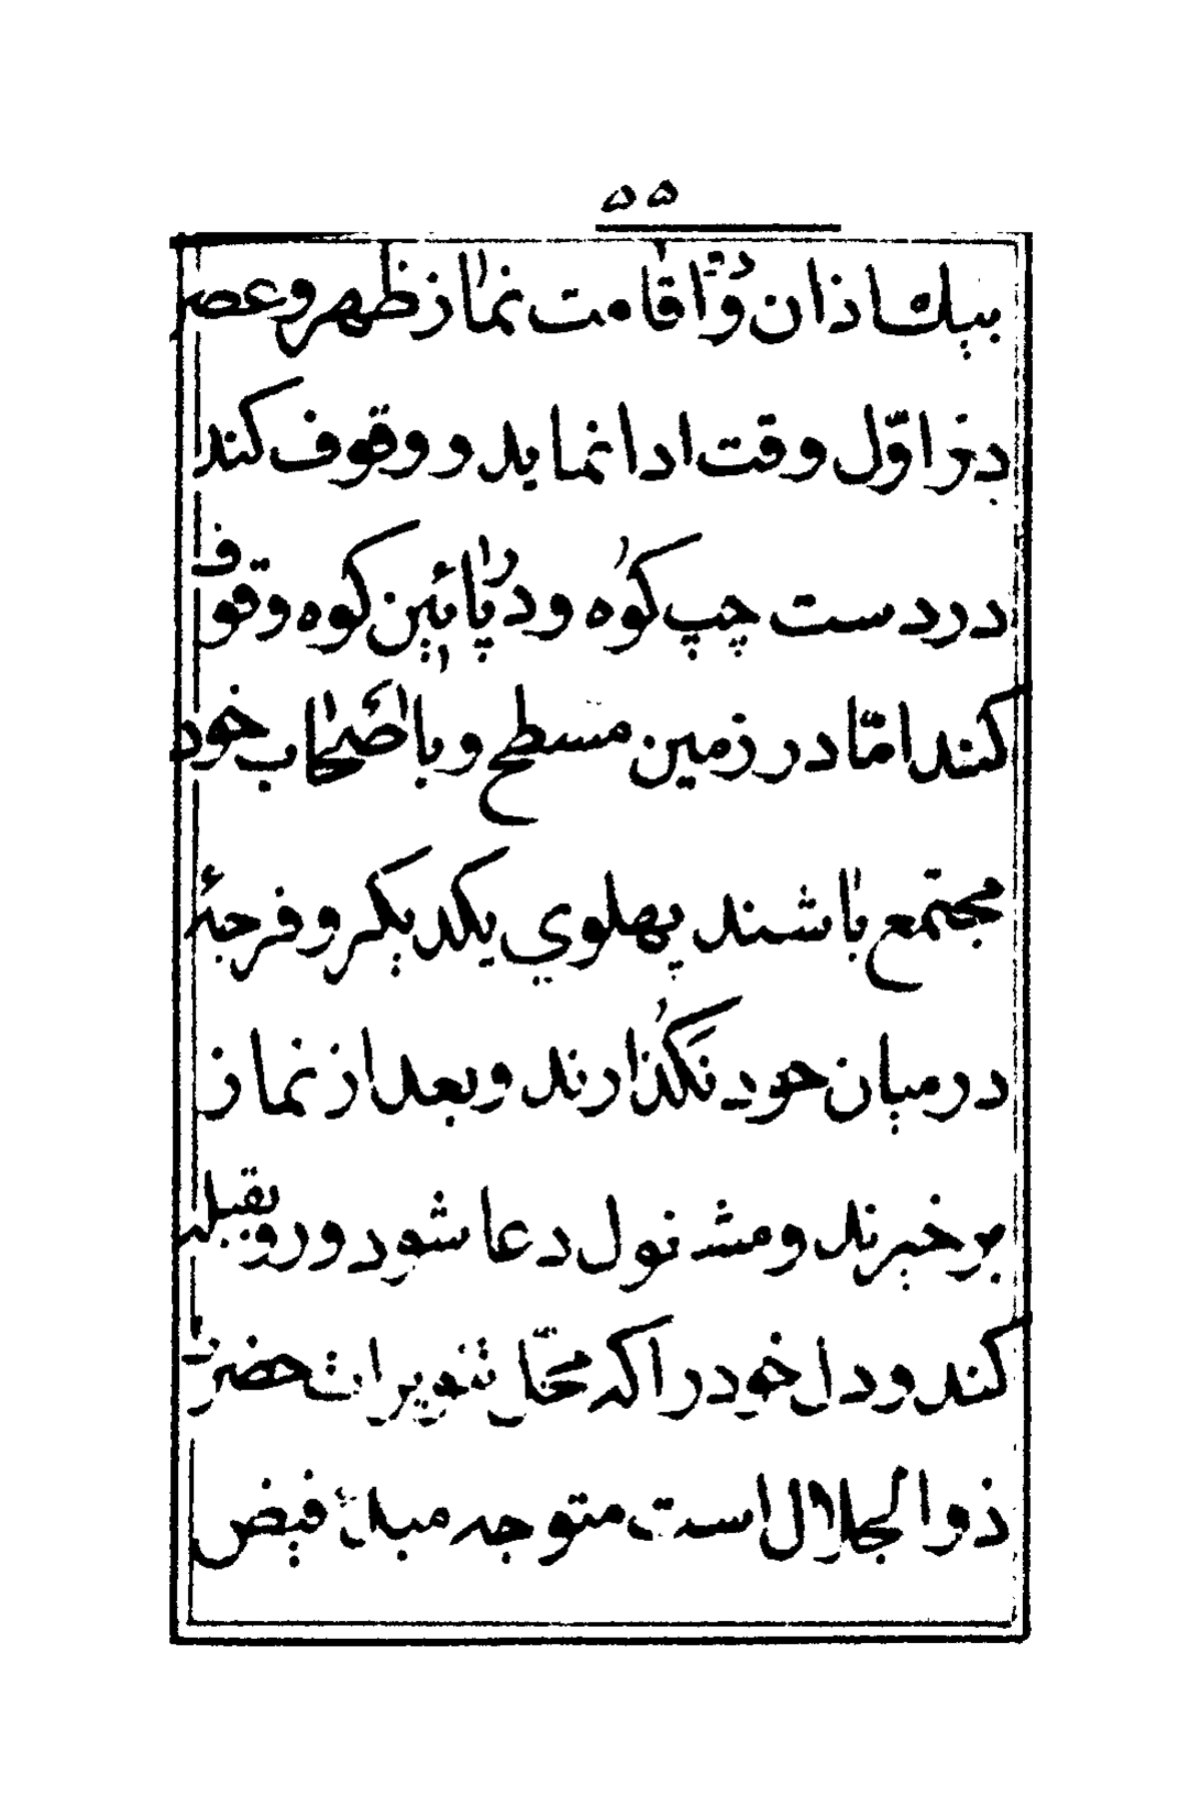 ۵۵
بیك اذان و دو اقامت نماز ظهر و عصر
در اوّل وقت ادا نماید و وقوف کند
در دست چپ کوه و در پائین کوه وقوف
کند امّا در زمین مسطح و با اصحاب خود
مجتمع باشند پهلوي یکدیکر و فرجهٔ
در میان خود نگذارند و بعد از نماز
برخیزند و مشغول دعا شود و رو بقبله
کند و دل خود را که محلّ تنویرات حضرت
ذوالجلال است متوجه مبدأ فیض